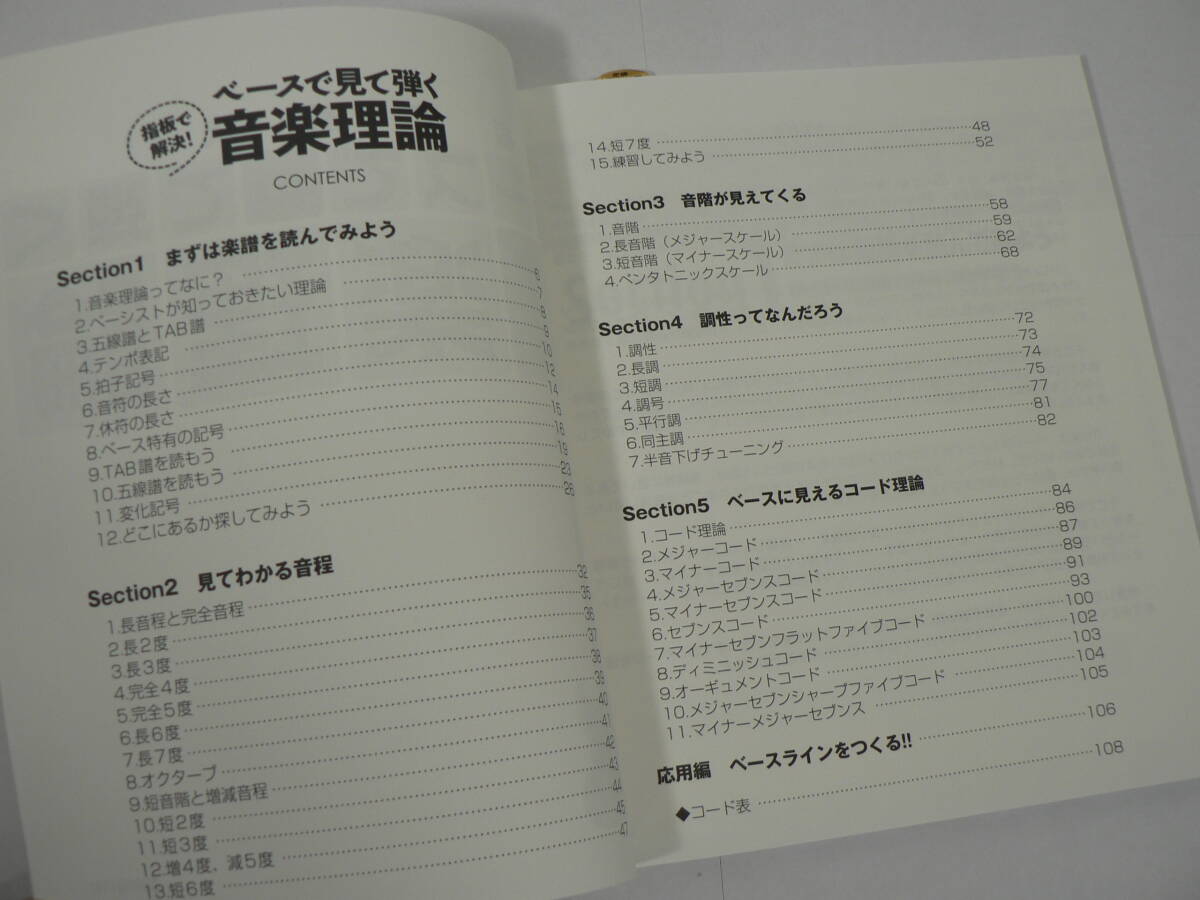 ベースで見て弾く
指板で
解決!
音楽理論
CONTENTS
Section1 まずは楽譜を読んでみよう
1.音楽理論ってなに？ ……6
2.ベーシストが知っておきたい理論 ……7
3.五線譜とTAB譜 ……8
4.テンポ表記 ……9
5.拍子記号 ……10
6.音符の長さ ……12
7.休符の長さ ……14
8.ベース特有の記号 ……15
9.TAB譜を読もう ……16
10.五線譜を読もう ……19
11.変化記号 ……23
12.どこにあるか探してみよう ……26
Section2 見てわかる音程
1.長音程と完全音程 ……32
2.長2度 ……35
3.長3度 ……36
4.完全4度 ……37
5.完全5度 ……38
6.長6度 ……39
7.長7度 ……40
8.オクターブ ……41
9.短音階と増減音程 ……42
10.短2度 ……43
11.短3度 ……44
12.増4度，減5度 ……45
13.短6度 ……47
14.短7度 ……48
15.練習してみよう ……52
Section3 音階が見えてくる
1.音階 ……58
2.長音階（メジャースケール） ……59
3.短音階（マイナースケール） ……62
4.ペンタトニックスケール ……68
Section4 調性ってなんだろう
1.調性 ……72
2.長調 ……73
3.短調 ……74
4.調号 ……75
5.平行調 ……77
6.同主調 ……81
7.半音下げチューニング ……82
Section5 ベースに見えるコード理論
1.コード理論 ……84
2.メジャーコード ……86
3.マイナーコード ……87
4.メジャーセブンスコード ……89
5.マイナーセブンスコード ……91
6.セブンスコード ……93
7.マイナーセブンフラットファイブコード ……100
8.ディミニッシュコード ……102
9.オーギュメントコード ……103
10.メジャーセブンシャープファイブコード ……104
11.マイナーメジャーセブンス ……105
応用編 ベースラインをつくる!! ……106
◆コード表 ……108